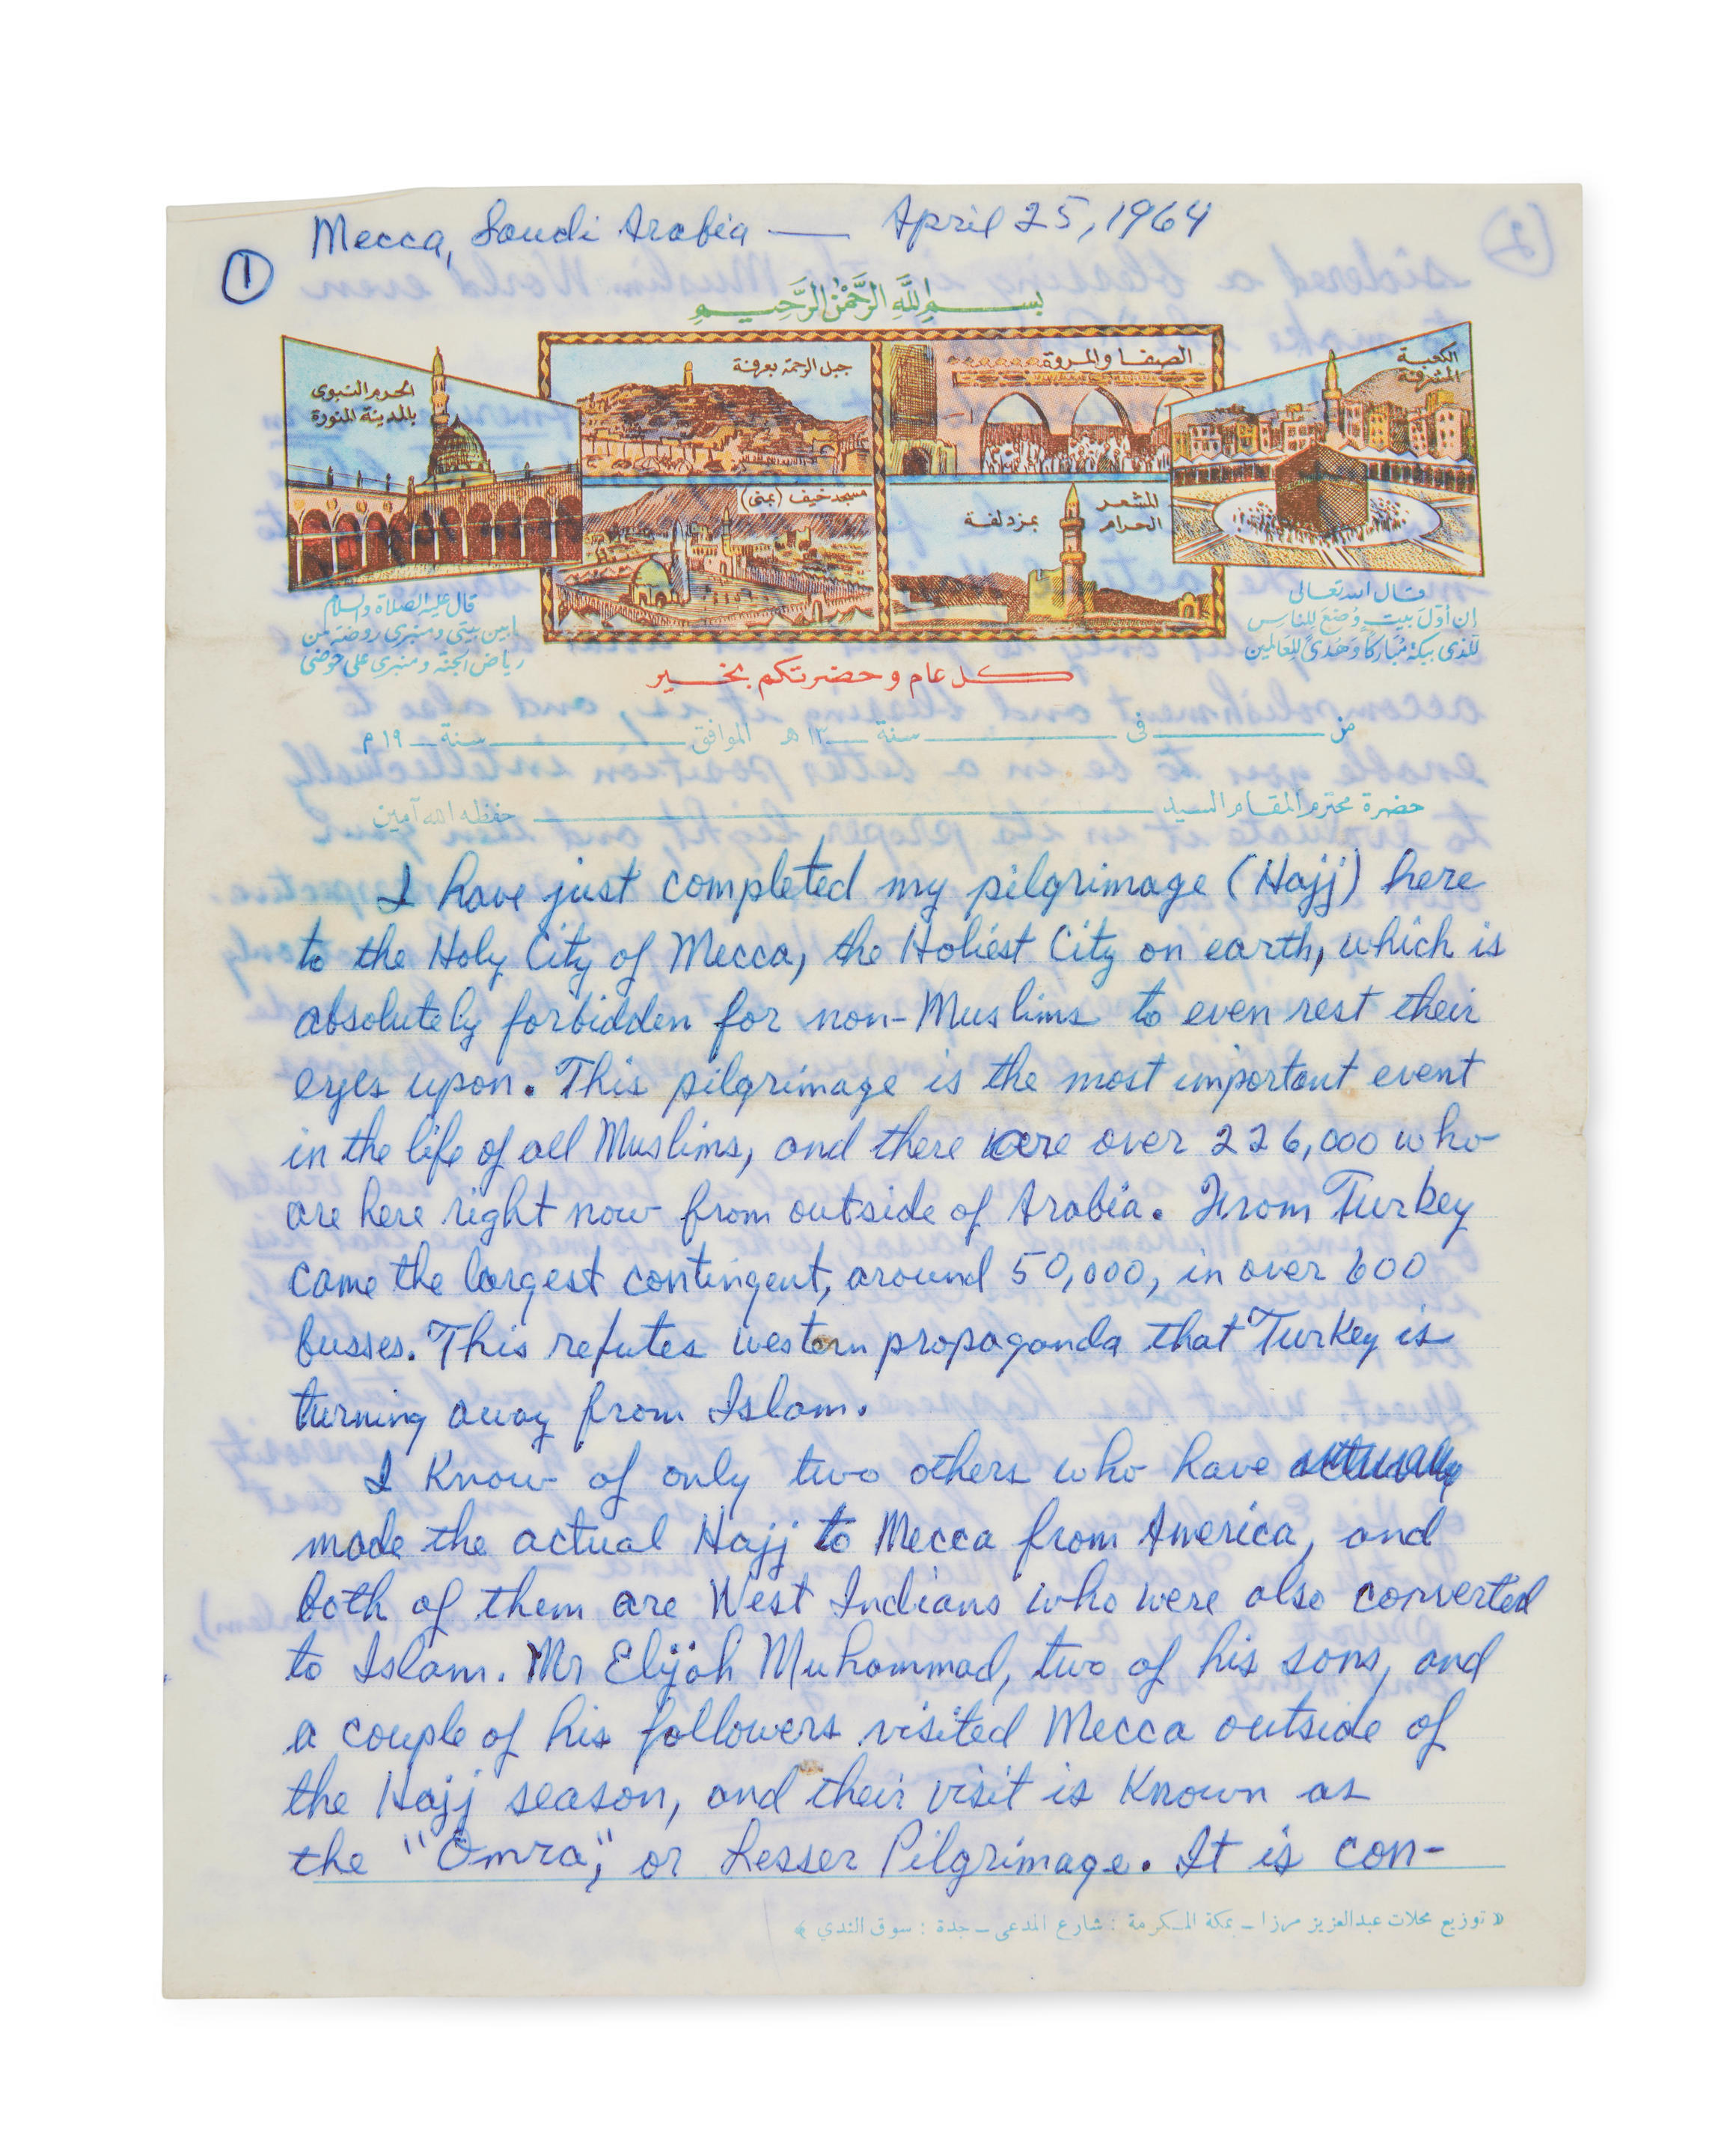 Mecca, Saudi Arabia — April 25, 1964
①
بسم الله الرحمن الرحيم
الحرم النبوى
بالمدينة المنورة
جبل الرحمة بعرفة
الصفا والمروة
الكعبة
المشرفة
مسجد خيف (بمنى)
المشعر
الحرام
بمزدلفة
قال عليه الصلاة والسلام
مابين بيتى ومنبرى روضة من
رياض الجنة ومنبرى على حوضى
قال الله تعالى
إن أول بيت وضع للناس
للذى ببكة مباركا وهدى للعالمين
كل عام وحضرتكم بخير
من ــــ فى ــــ سنة ــــ ١٣ هـ الموافق ــــ سنة ــــ ١٩ م
حضرة محترم المقام السيد ــــ حفظه الله آمين
I have just completed my pilgrimage (Hajj) here
to the Holy City of Mecca, the Holiest City on earth, which is
absolutely forbidden for non-Muslims to even rest their
eyes upon. This pilgrimage is the most important event
in the life of all Muslims, and there are over 226,000 who
are here right now from outside of Arabia. From Turkey
came the largest contingent, around 50,000, in over 600
busses. This refutes western propaganda that Turkey is
turning away from Islam.
I know of only two others who have actually
made the actual Hajj to Mecca from America, and
both of them are West Indians who were also converted
to Islam. Mr Elijah Muhammad, two of his sons, and
a couple of his followers visited Mecca outside of
the Hajj season, and their visit is known as
the "Omra," or Lesser Pilgrimage. It is con-
« توزيع محلات عبدالعزيز مرزا ـ بمكة المكرمة : شارع المدعى ـ جدة : سوق الندي »